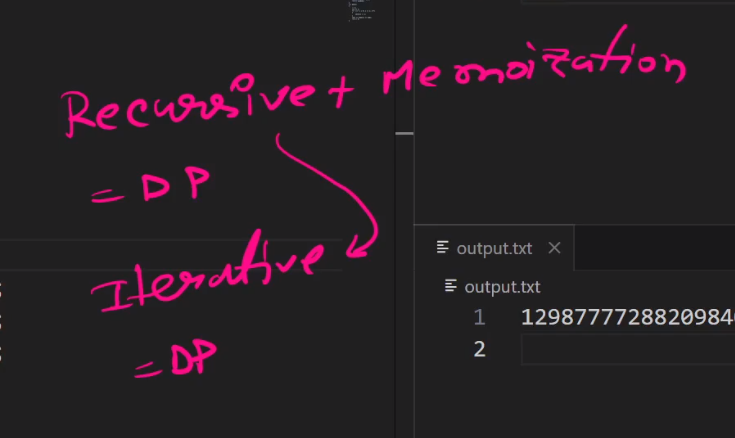 Recursive + Memoization
= DP
Iterative
= DP
output.txt
output.txt
1 12987777288209840
2